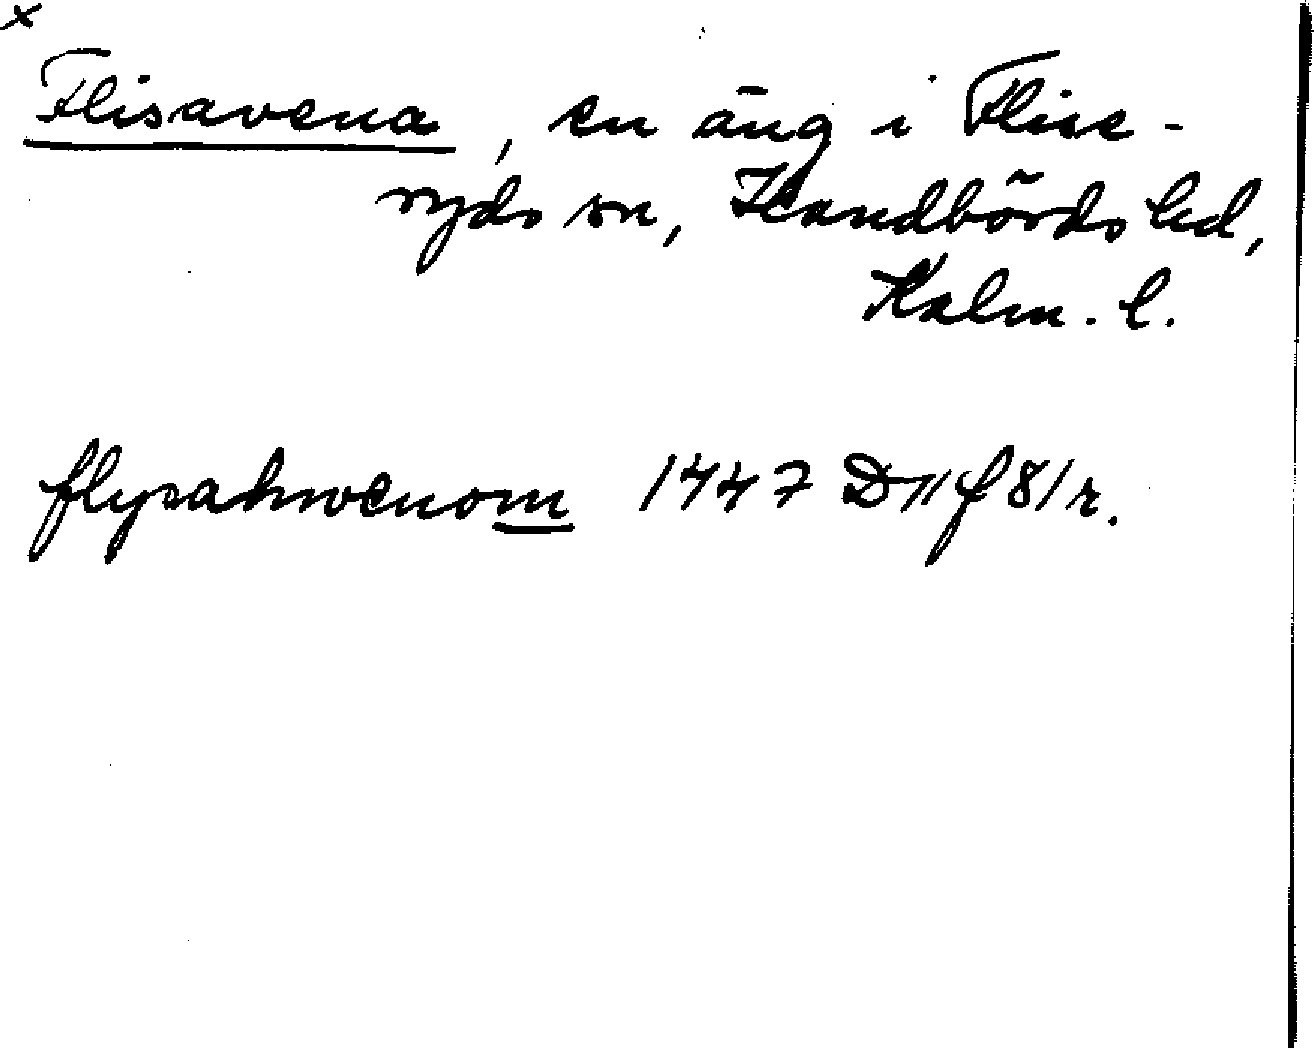 x
Flisavena, en äng i Flise-
ryds sn, Handbörds hd,
Kalm. l.
flysahwenom 1447 D 11 f 81 r.